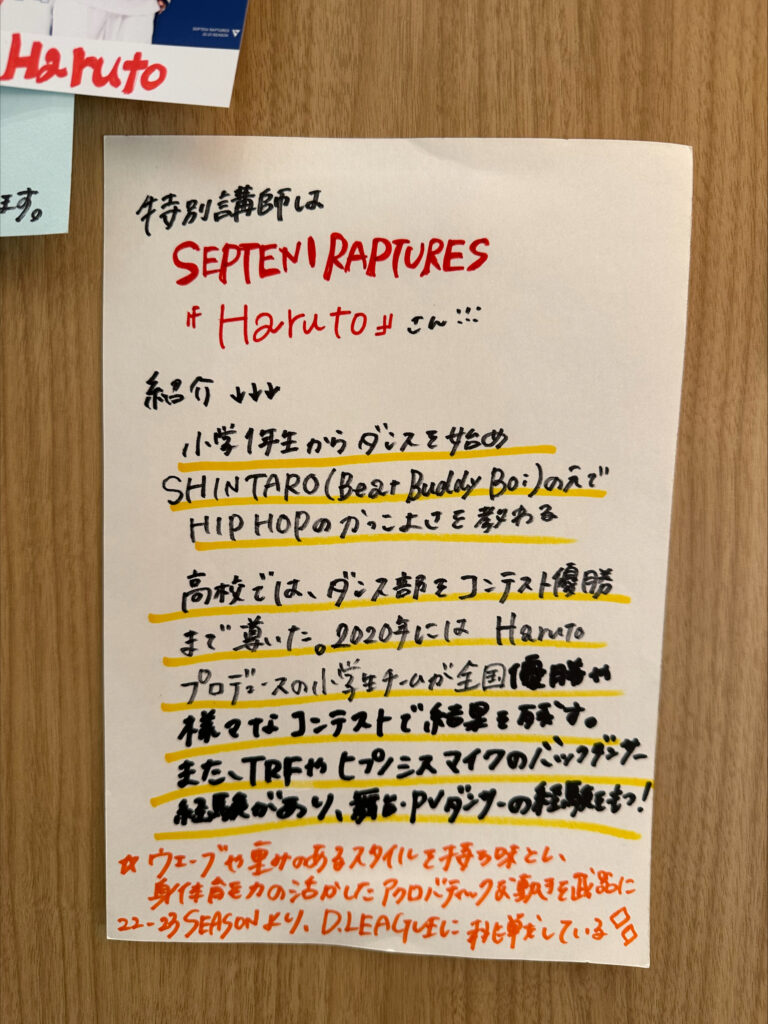 SEPTENI RAPTURES
22-23 SEASON
Haruto
ます。
特別講師は
SEPTENI RAPTURES
〝Haruto〟さん!!!
紹介↓↓↓
小学1年生からダンスを始め
SHINTARO(Beat Buddy Boi)の元で
HIPHOPのかっこよさを教わる
高校では、ダンス部をコンテスト優勝
まで導いた。2020年には Haruto
プロデュースの小学生チームが全国優勝や
様々なコンテストで結果を残す。
また、TRFやヒプノシスマイクのバックダンサー
経験があり、舞台・PVダンサーの経験をもつ!
☆ウェーブや重みのあるスタイルを持ち味とし、
身体能力の活かしたアクロバティックな動きを武器に
22-23 SEASONより、D.LEAGUEに挑戦している